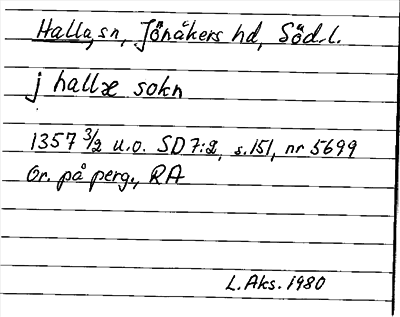 Halla, sn, Jönåkers hd, Söd.l.
j hallæ sokn
1357 3/2 u.o. SD 7:2, s.151, nr 5699
Or. på perg., RA
L. Aks. 1980